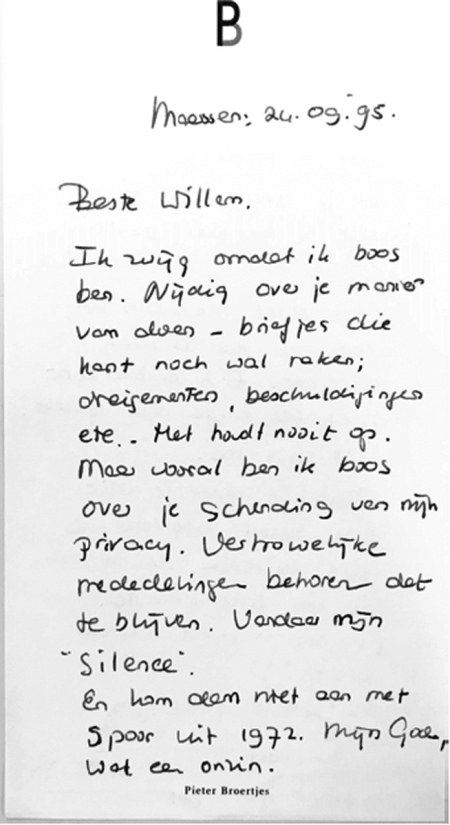 B
Maessen: 24.09.'95.
Beste Willem,
Ik zwijg omdat ik boos
ben. Nijdig over je manier
van doen – briefjes die
kant noch wal raken;
dreigementen, beschuldigingen
etc.. Het houdt nooit op.
Maar vooral ben ik boos
over je schending van mijn
privacy. Vertrouwelijke
mededelingen behoren dat
te blijven. Vandaar mijn
"Silence".
En kom alsem niet aan met
Spoor uit 1972. Mijn God,
wat een onzin.
Pieter Broertjes